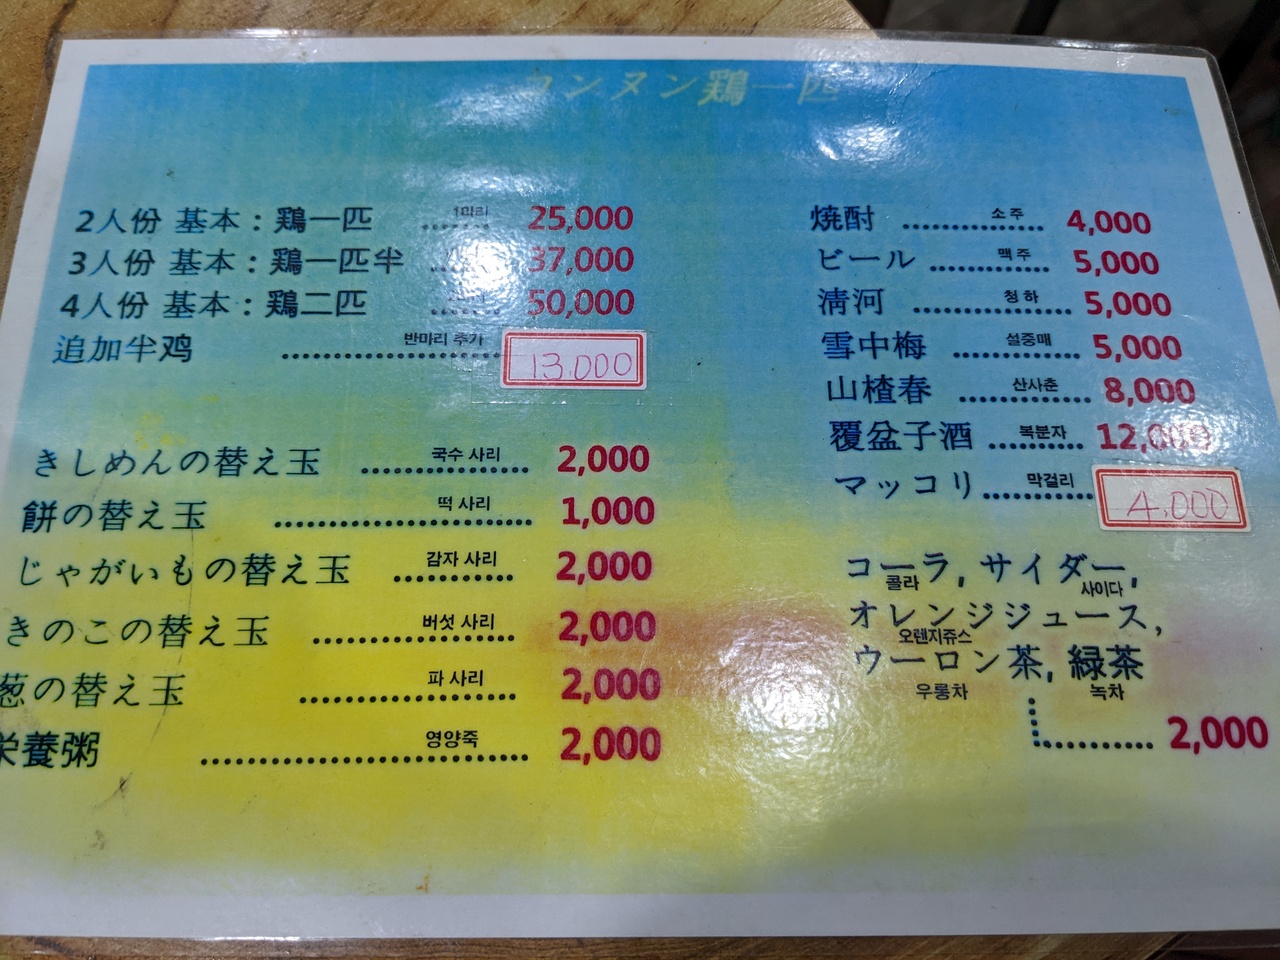 コンヌン鶏一匹
2人份 基本：鶏一匹 1마리 25,000
3人份 基本：鶏一匹半 37,000
4人份 基本：鶏二匹 50,000
追加半鸡 반마리 추가 13,000
きしめんの替え玉 국수 사리 2,000
餅の替え玉 떡 사리 1,000
じゃがいもの替え玉 감자 사리 2,000
きのこの替え玉 버섯 사리 2,000
葱の替え玉 파 사리 2,000
栄養粥 영양죽 2,000
焼酎 소주 4,000
ビール 맥주 5,000
清河 청하 5,000
雪中梅 설중매 5,000
山楂春 산사춘 8,000
覆盆子酒 복분자 12,000
マッコリ 막걸리 4,000
コーラ, サイダー,
콜라 사이다
オレンジジュース,
오렌지쥬스
ウーロン茶, 緑茶
우롱차 녹차
2,000